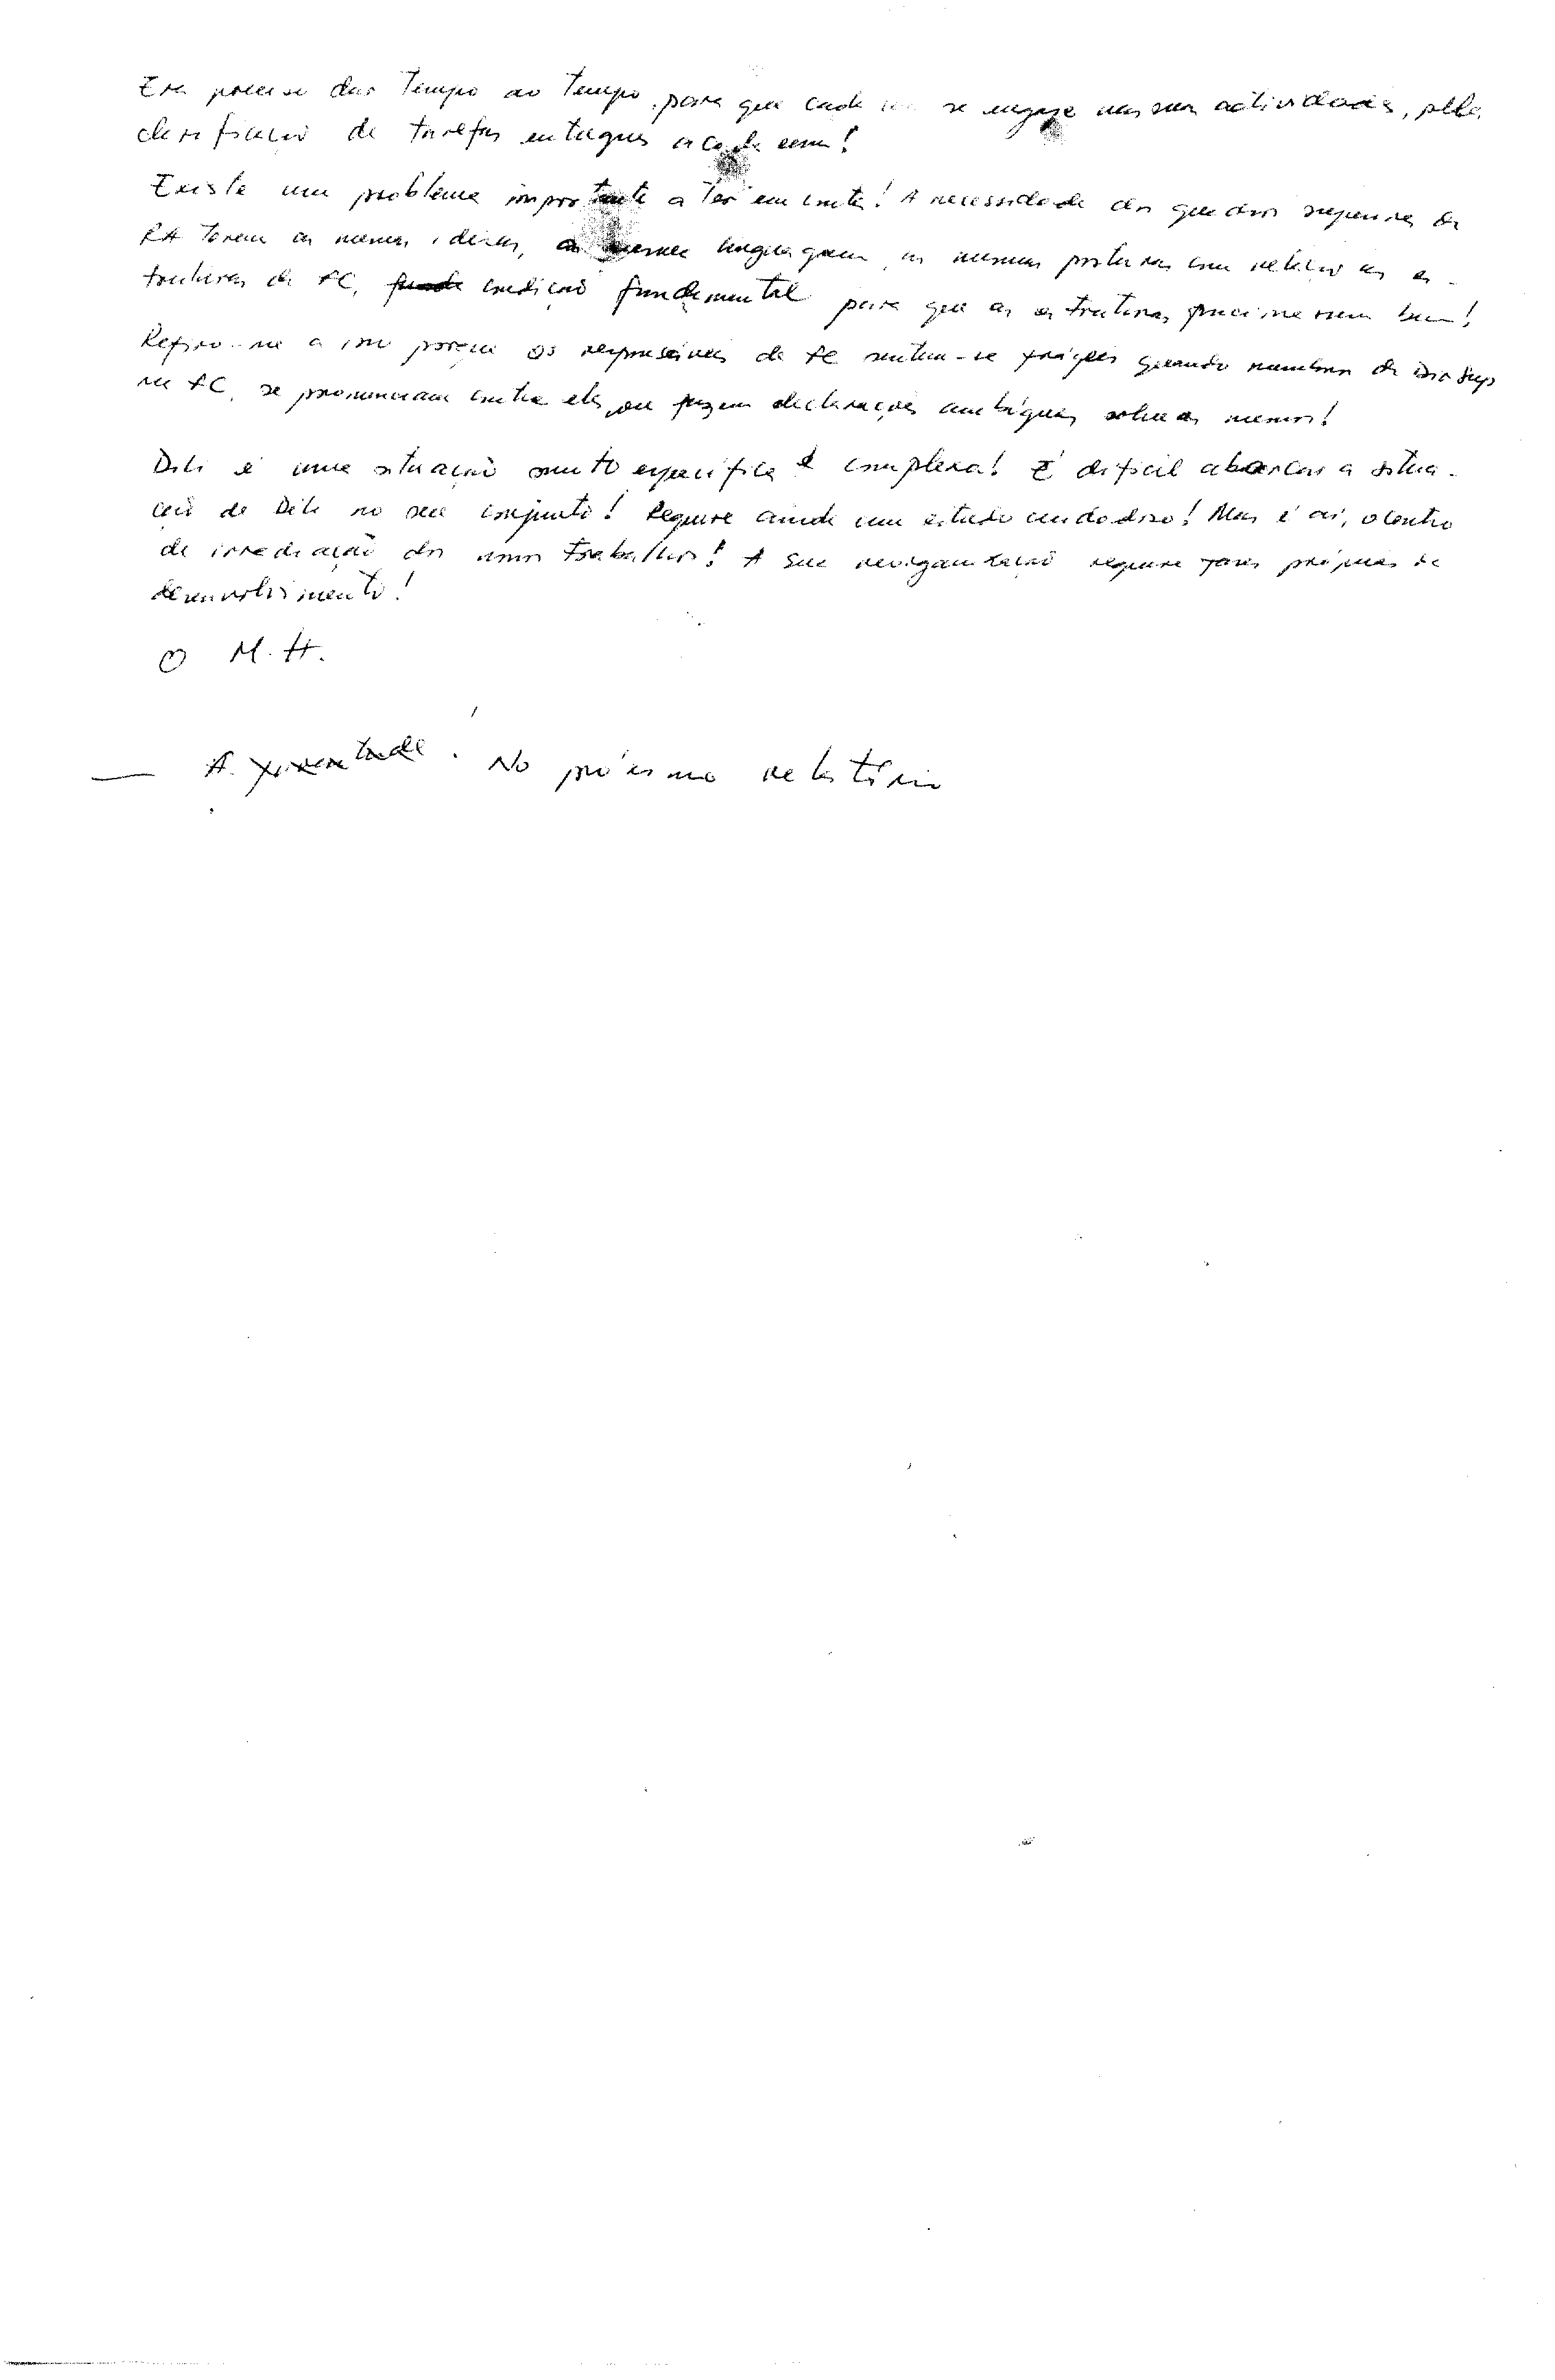 Era preciso dar Tempo ao Tempo, para que cada um se engaje nas suas actividades, pela
clarificação de tarefas entregues a cada um!
Existe um problema importante a Ter em conta! A necessidade dos quadros superiores da
RA Terem as mesmas ideias, a mesma linguagem, as mesmas posturas com relação às es-
truturas da FC, condição fundamental para que as estruturas funcionem bem!
Refiro-me a isso porque os responsáveis da FC sentem-se frágeis quando membros da Dir Sup
na FC, se pronunciam contra eles ou fazem declarações ambíguas sobre os mesmos!
Dili é uma situação muito específica e complexa! É difícil abarcar a situa-
ção de Dili no seu conjunto! Requere ainda um estudo cuidadoso! Mas é aí, o centro
de irradiação dos nossos Trabalhos! A sua reorganização requere fases próprias de
desenvolvimento!
O M.H.
— A juventude. No próximo relatório